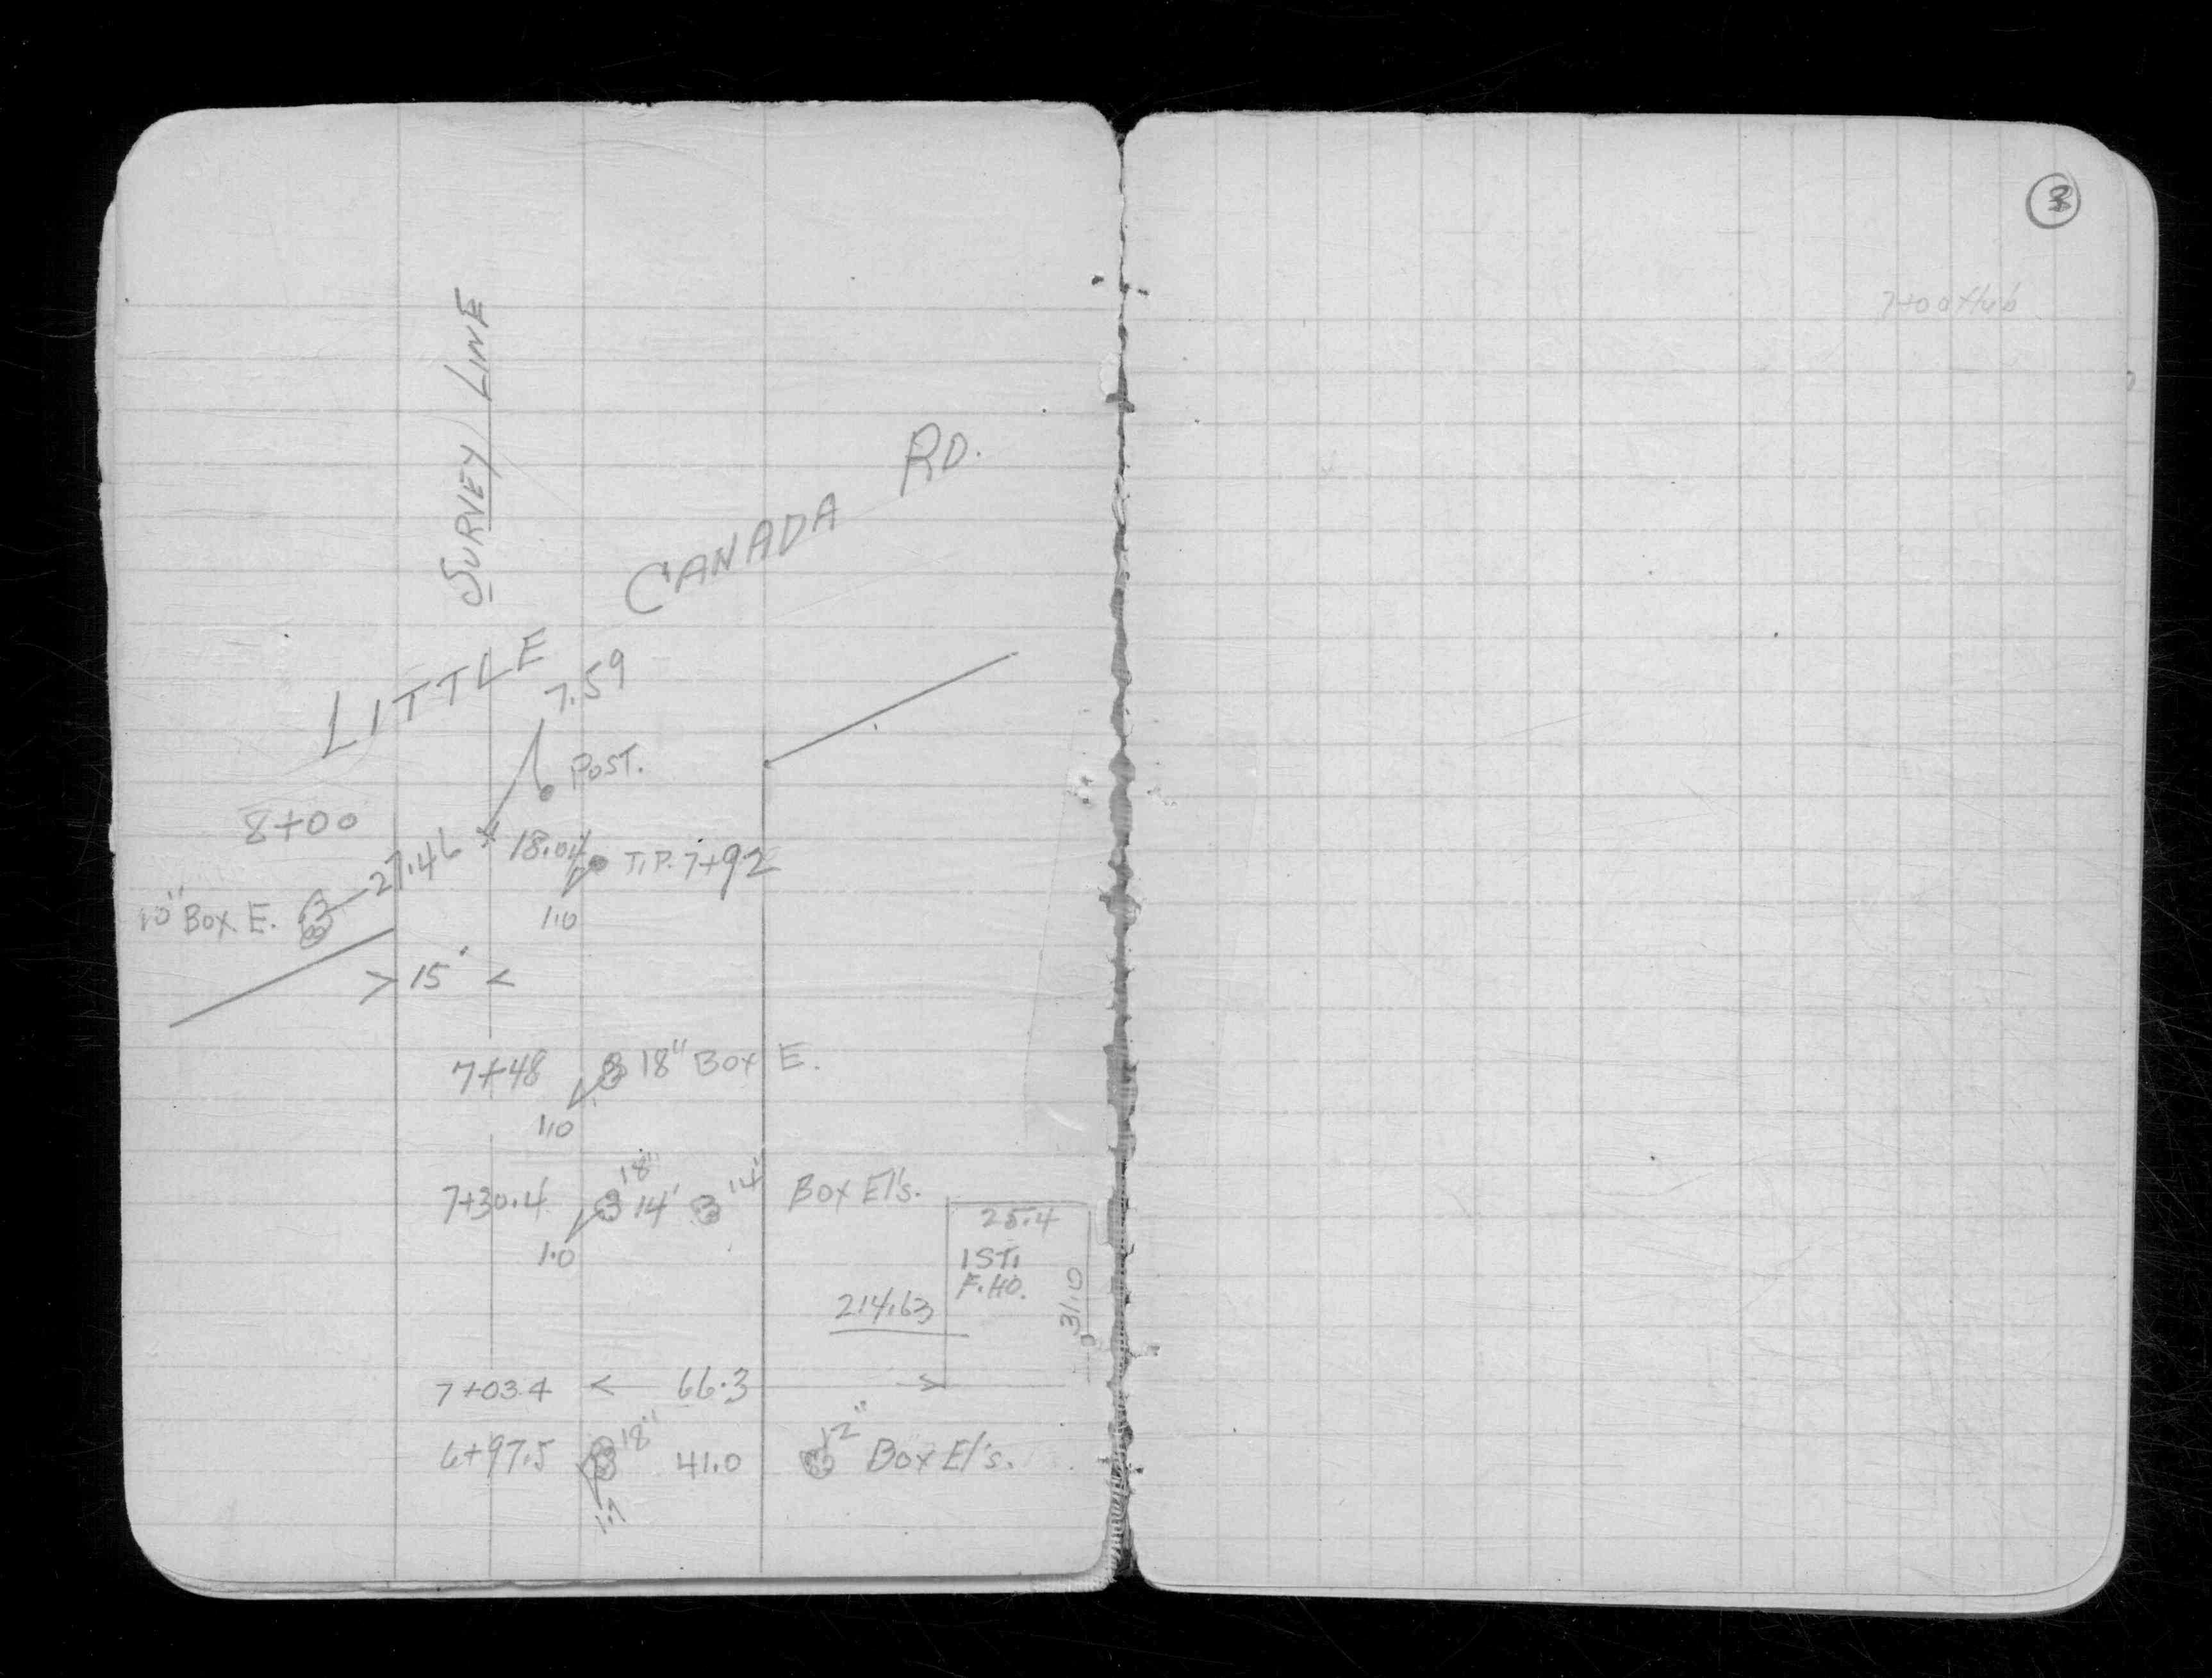 SURVEY LINE
LITTLE CANADA RD.
7.59
POST.
8+00
27.46
18.04
T.P. 7+92
1.0
10" BOX E.
15'
7+48
18" BOX E.
1.0
7+30.4
18"
14'
14"
BOX El's.
1.0
25.4
1 ST.
F. HO.
31.0
214.63
7+03.4
66.3
6+97.5
18"
41.0
12"
BOX El's.
1.7
3
7+00 Hub